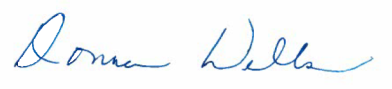 Donna Wells